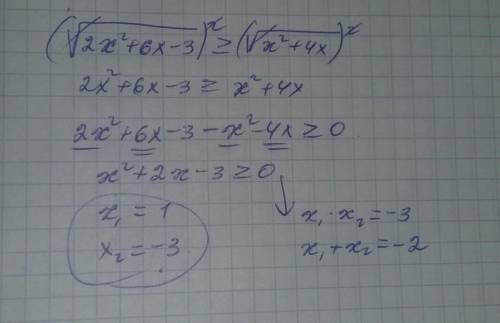 (√2x²+6x-3)ˣ ≥ (√x²+4x)ˣ
2x²+6x-3 ≥ x²+4x
2x²+6x-3-x²-4x ≥ 0
x²+2x-3 ≥ 0
x₁ = 1
x₂ = -3
x₁·x₂ = -3
x₁+x₂ = -2